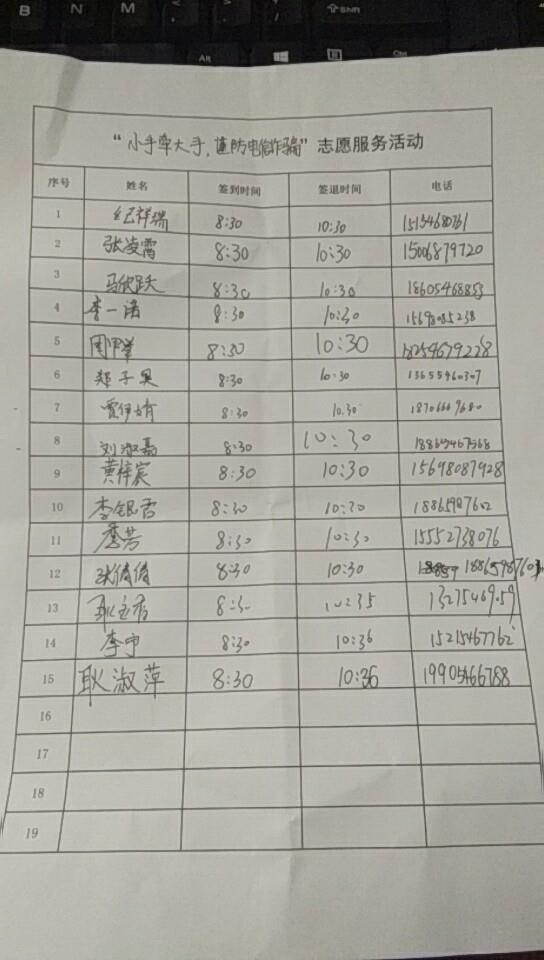 B N M < > ?
⇧SHR
Alt
"小手牵大手,谨防电信诈骗"志愿服务活动
序号 姓名 签到时间 签退时间 电话
1 纪祥瑞 8:30 10:30 15154680761
2 张凌霄 8:30 10:30 15006879720
3 马欣跃 8:30 10:30 18605468853
4 李一诺 8:30 10:30 15698085238
5 8:30 10:30 18254679228
6 郑子昊 8:30 10:30 13655460307
7 贾伊婧 8:30 10:30
8 刘淑嘉 8:30 10:30 18865467568
9 黄梓宸 8:30 10:30 15698087928
10 李银君 8:30 10:30 18865987602
11 季芳 8:30 10:30 15552738076
12 张倩倩 8:30 10:30
13 8:30 10:35 13275469059
14 李宁 8:30 10:36 15215467762
15 耿淑萍 8:30 10:36 19905466788
16
17
18
19